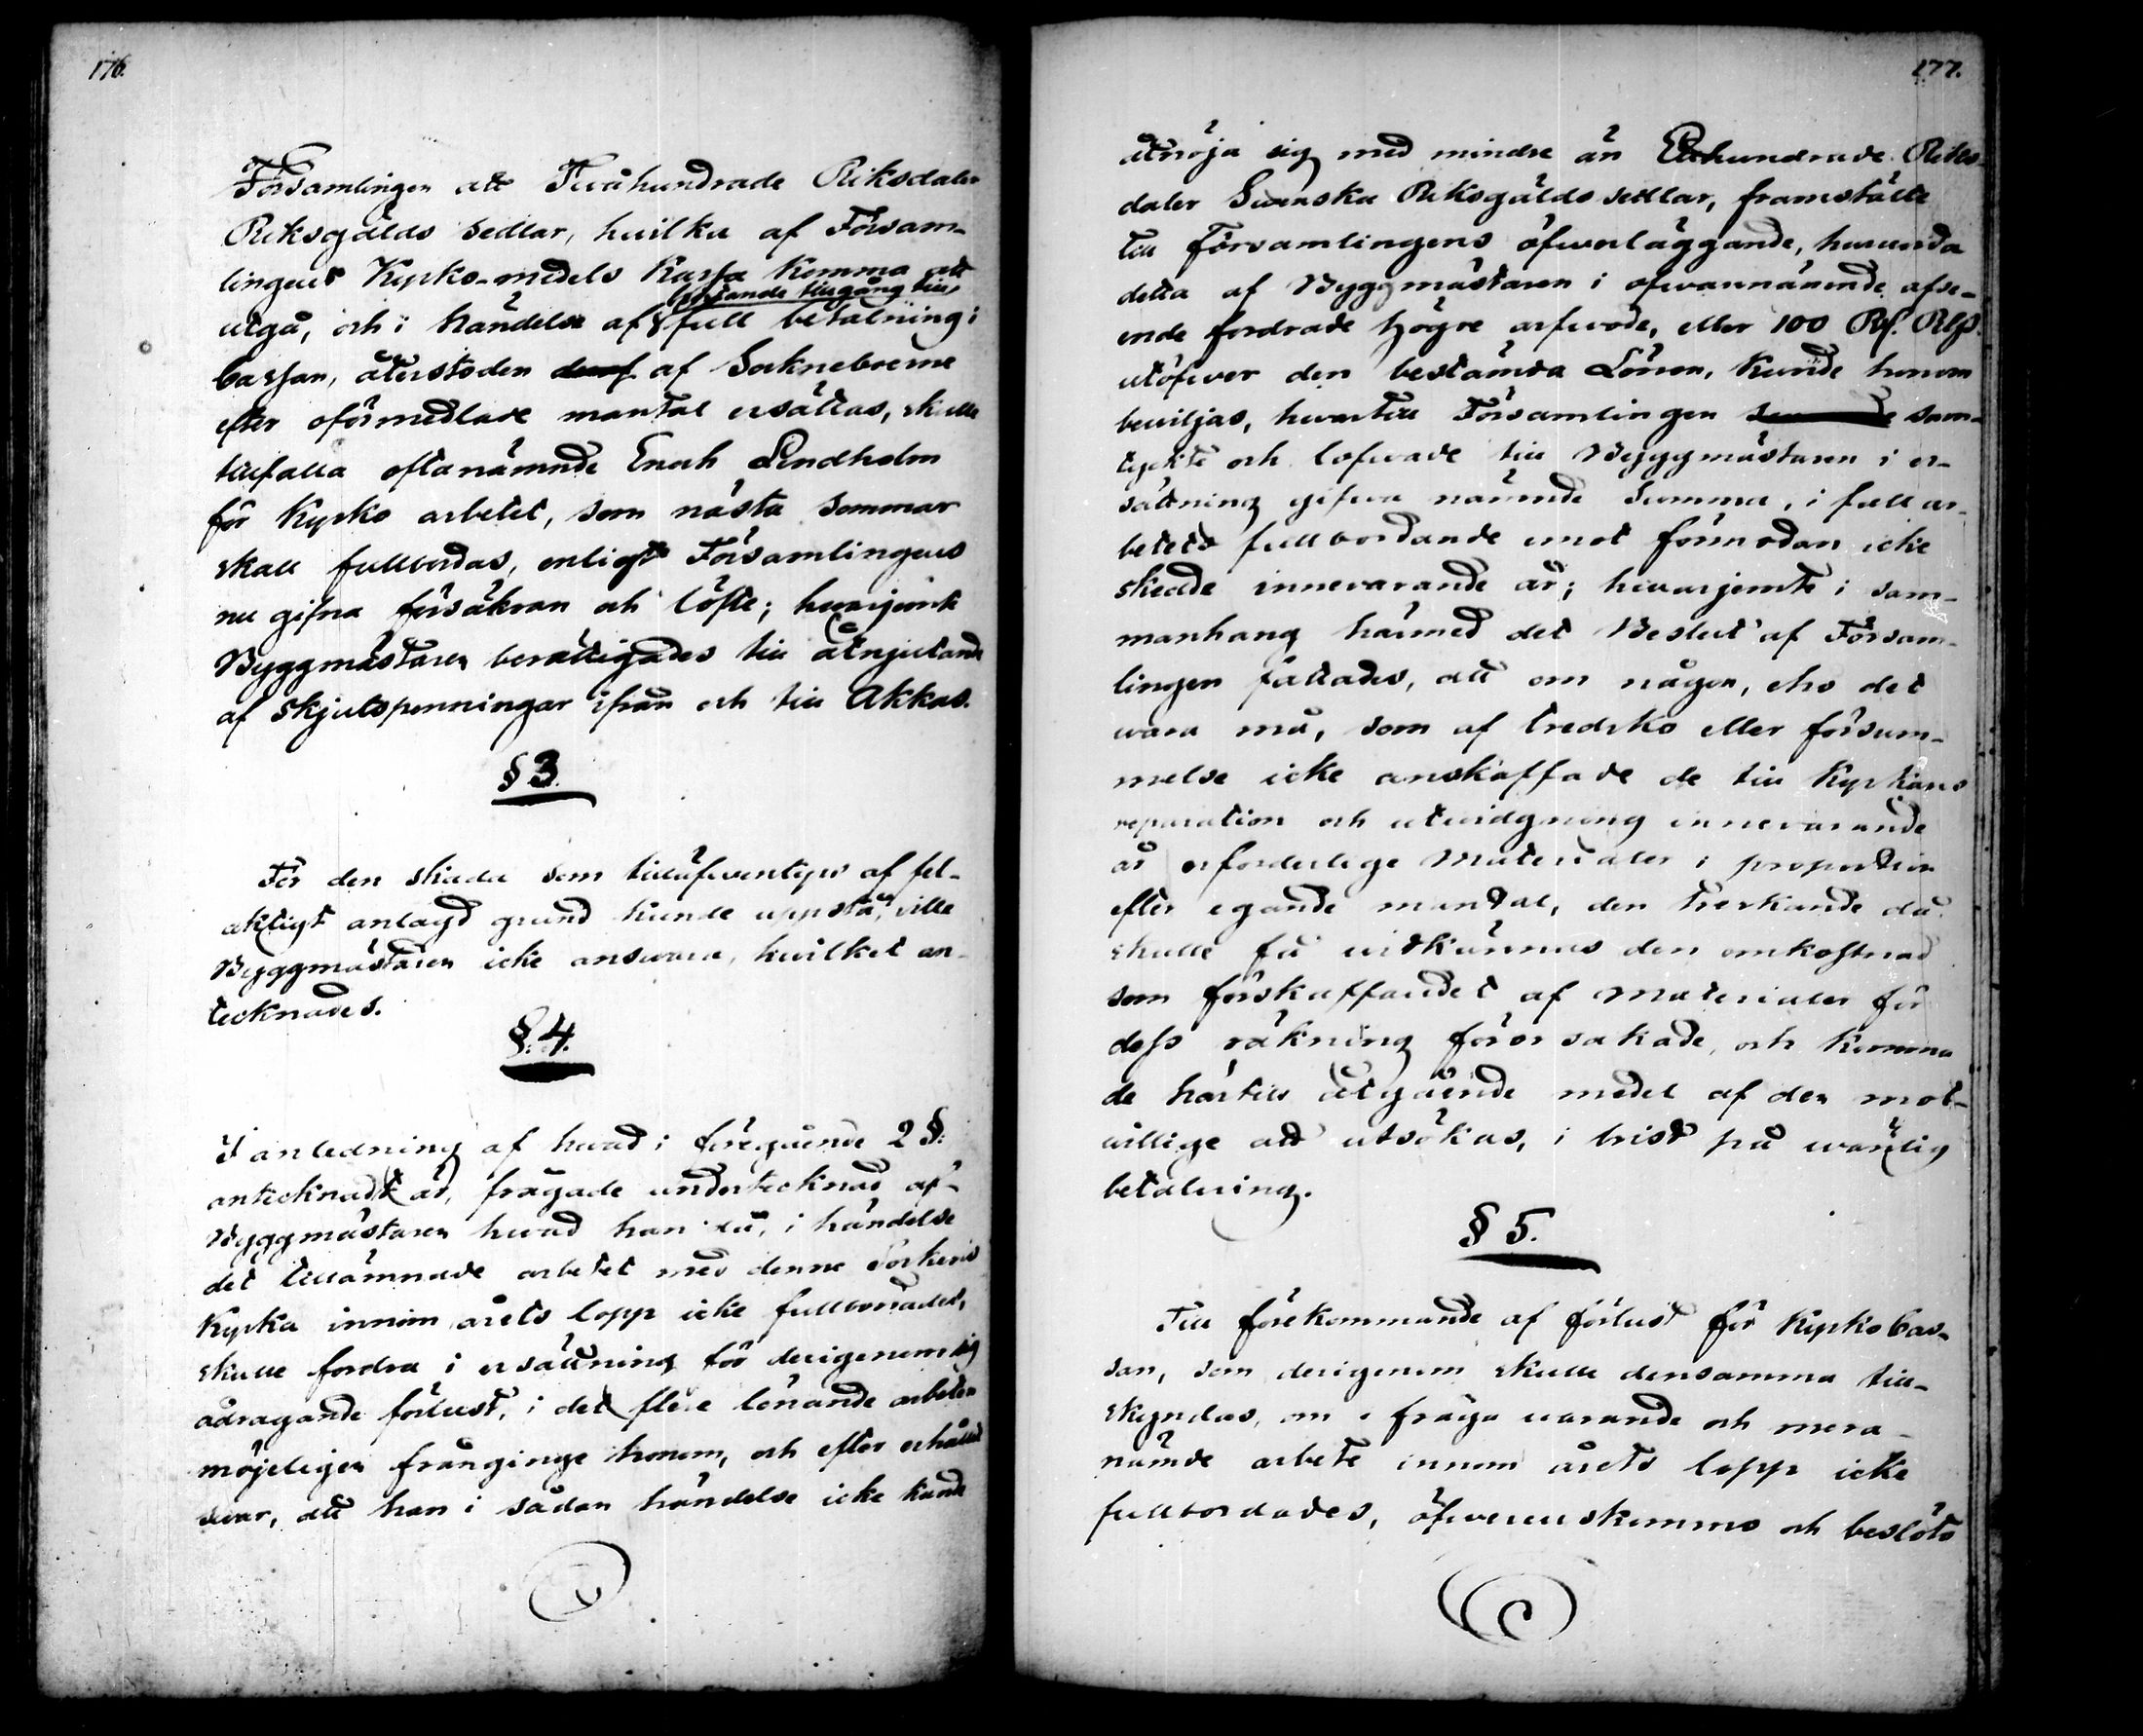 176.
Församlingen att Tvåhundrade Riksdaler
Riksgälds Sedlar, hvilka af Församlingens
lingens Kyrko-medels Kassa Komma att
utgå, och i händelse af felande tillgång till full betalning i
Cassan, återstoden af Sockneboerne
efter oförmedlade mantal ersättas, skulle
tillfalla oftanämnde Enoch Lindholm
för Kyrko arbetet, som nästa Sommar
skall fullbordas, enligt Församlingens
nu gifna försäkran och löfte; hvarjemte
Byggmästaren berättigades till åtnjutande
af skjutspenningar ifrån och till Akkas.
§ 3.
För den skada som till äfventyrs af fel-
aktigt anlagd grund kunde uppstå, ville
Byggmästaren icke answara, hvilket an-
tecknades.
§. 4.
I anledning af hvad i föregående 2 §.
antecknadt är, frågade undertecknad af
Byggmästaren hvad han då, i händelse
det tillämnade arbetet med denne Sockens
Kyrka innom årets lopp icke fullbordades,
skulle fordra i ersättning för derigenom sig
ådragande förlust, i det flere lönande arbeten
möjeligen frånginge honom, och efter erhållet
svar, att han i sådan händelse icke kunde
177.
åtnöja sig med mindre än Etthundrade Riks-
daler Svenska Riksgälds sedlar, framstälte
till Församlingens öfverläggande, huruvida
detta af Byggmästaren i ofvannämnde afse-
ende fordrade högre arfvode, eller 100 Rd. Rgs.
utöfver den bestämda Lönen, kunde honom
beviljas, hvartill Församlingen sam-
tyckte och lofvade till Byggmästaren i er-
sättning gifva nämnde Summa, i fall ar-
betets fullbordande emot förmodan icke
skedde innevarande år; hvarjemte i sam-
manhang härmed det Beslut af Försam-
lingen fattades, att om någon, eho det
vara må, som af tredsko eller försum-
melse icke anskaffade de till Kyrkans
reparation och utvidgning innevarande
år erforderlige Materialer i proportion
efter egande mantal, den treskande då
skulle få vidkännas den omkostnad
som förskaffandet af Materialer för
dess räkning förorsakade, och komma
de härtill åtgående medel af den mot-
villige att utsökas, i brist på vänlig
betalning.
§ 5.
Till förekommande af förlust för Kyrko Cas-
san, som derigenom skulle densamma till-
skyndas, om i fråga varande och mera
nämde arbete innom årets lopp icke
fullbordades, öfverenskommo och beslöto